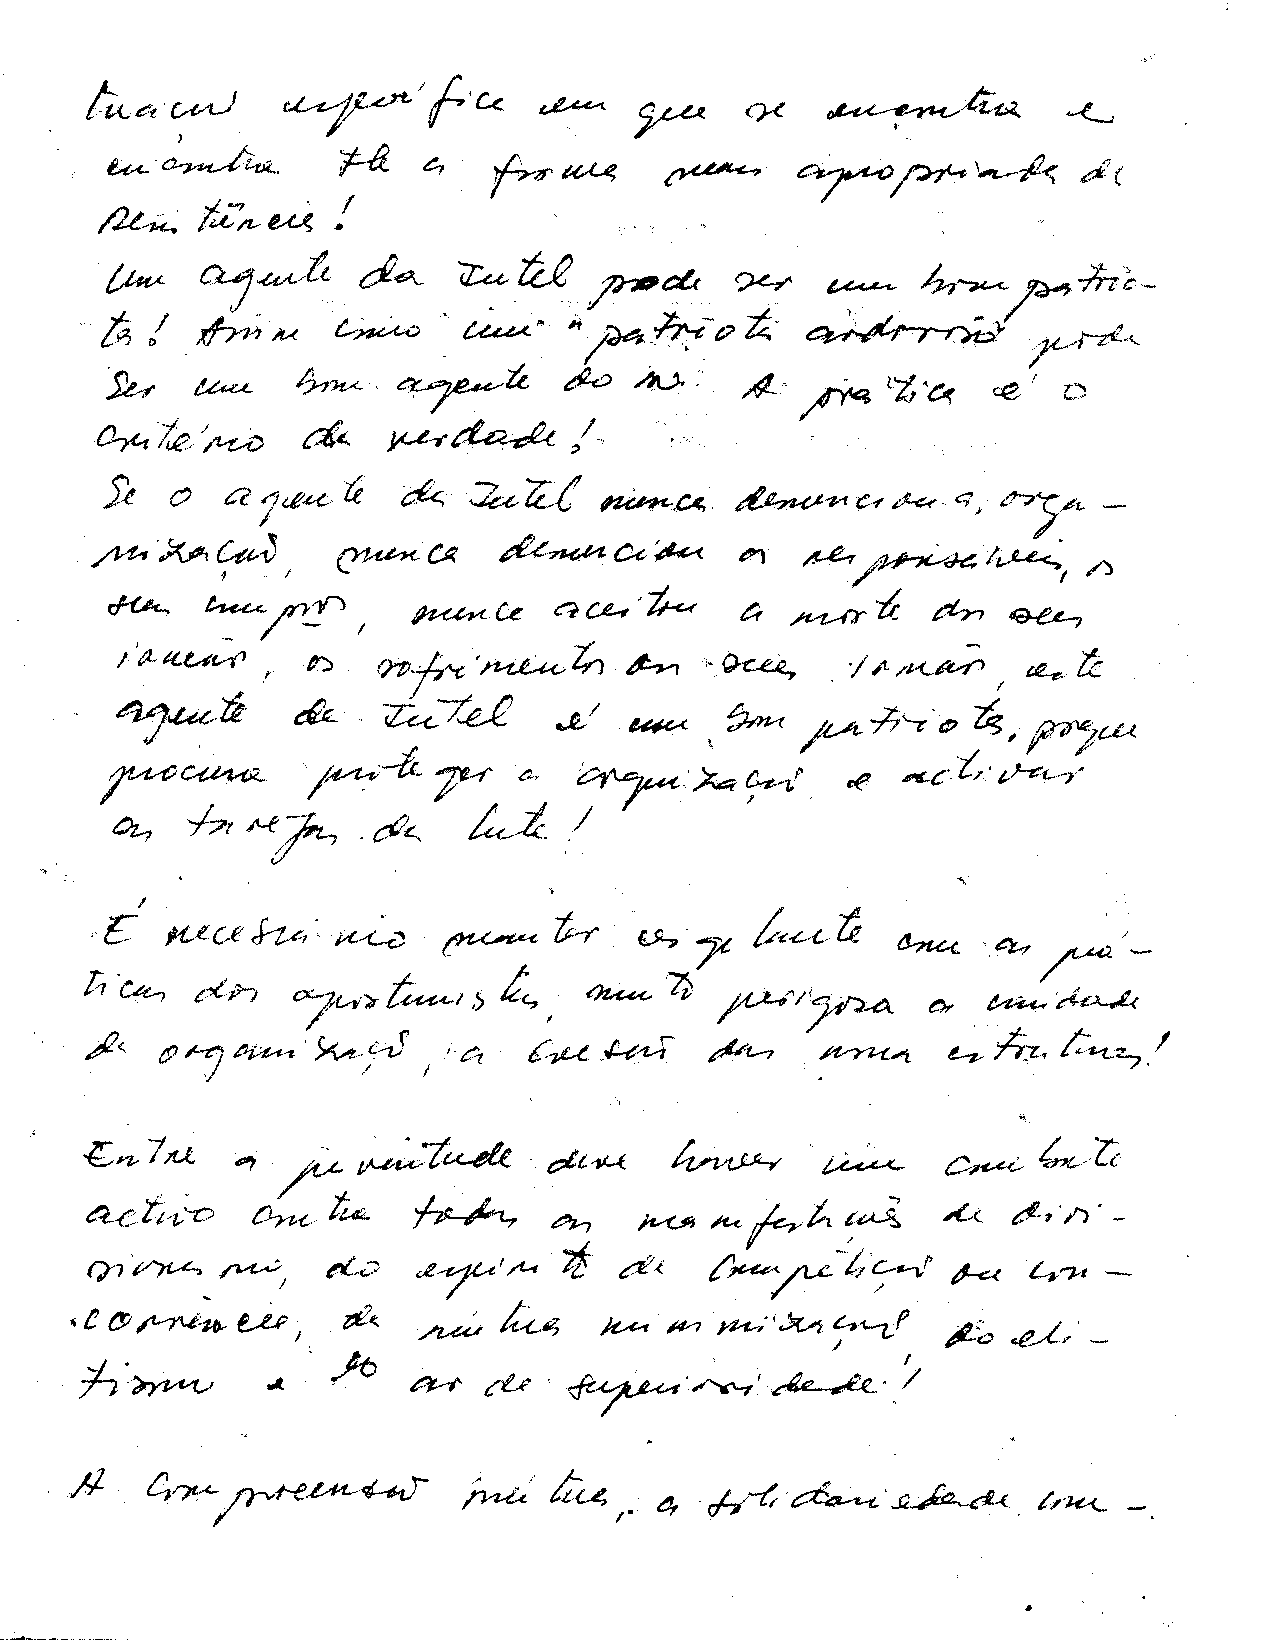 tuação específica em que se encontra e
encontra a forma mais apropriada de
resistência!
Um agente da Intel pode ser um bom patrio-
ta! Assim como um "patriota ardoroso pode
ser um bom agente do ini. A prática é o
critério da verdade!
Se o agente da Intel nunca denunciou a orga-
nização, nunca denunciou os responsáveis, os
seus, nunca aceitou a morte dos seus
irmãos, os sofrimentos dos seus irmãos, este
agente da Intel é um bom patriota, porque
procura proteger a organização e activar
as tarefas da luta!
É necessário manter vigilante com as prá-
ticas dos oportunistas, muito perigosa a unidade
da organização, a coesão das nossas estruturas!
Entre a juventude deve haver um combate
activo contra todas as manifestações de divi-
sionismo, do espírito de competição ou con-
corrência, da mútua minimização, do eli-
tismo e do ar de superioridade!
A compreensão mútua, a solidariedade com-